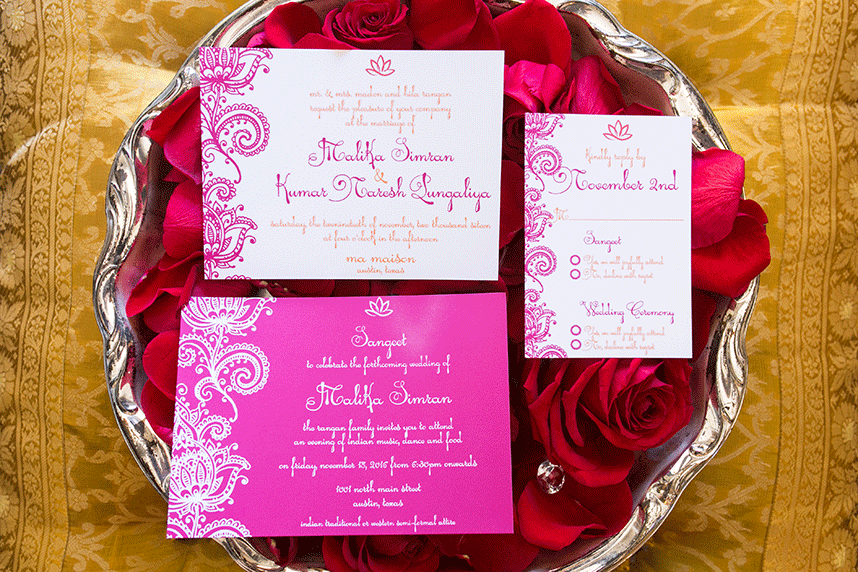 mr. & mrs. madon and hila rangan
request the pleasure of your company
at the marriage of
Malika Simran
&
Kumar Naresh Pungaliya
saturday the twentieth of november, two thousand sixteen
at four o'clock in the afternoon
ma maison
austin, texas
Kindly reply by
November 2nd
M
Sangeet
Yes, we will joyfully attend
No, decline with regret
Wedding Ceremony
Yes, we will joyfully attend
No, decline with regret
Sangeet
to celebrate the forthcoming wedding of
Malika Simran
the rangan family invites you to attend
an evening of indian music, dance and food
on friday, november 13, 2015 from 6:30pm onwards
1001 north main street
austin, texas
indian traditional or western semi-formal attire